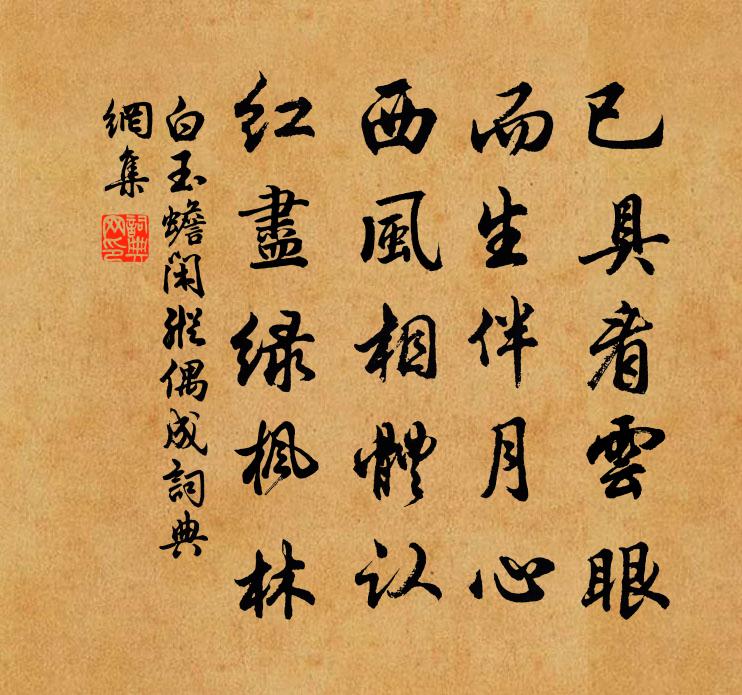 已具看雲眼
而生伴月心
西風相體認
紅盡綠楓林
白玉蟾閑縱偶成詞典
網集
詞典
网印